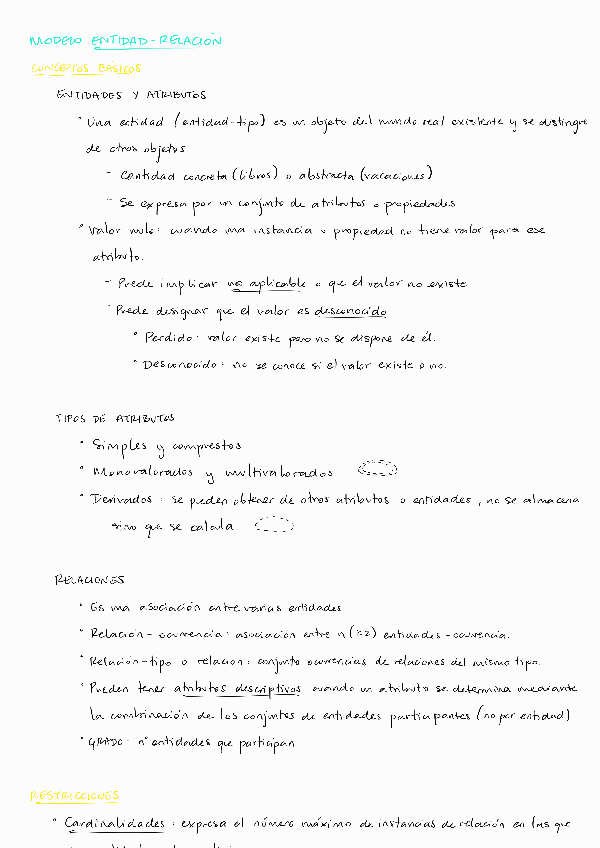 MODELO ENTIDAD-RELACIÓN
CONCEPTOS BÁSICOS
ENTIDADES Y ATRIBUTOS
° Una entidad (entidad-tipo) es un objeto del mundo real existente y se distingue
de otros objetos
- Cantidad concreta (libros) o abstracta (vacaciones)
- Se expresa por un conjunto de atributos o propiedades
° Valor nulo: cuando una instancia o propiedad no tiene valor para ese
atributo.
- Puede implicar no aplicable o que el valor no existe
- Puede designar que el valor es desconocido
° Perdido: valor existe pero no se dispone de él.
° Desconocido: no se conoce si el valor existe o no.
TIPOS DE ATRIBUTOS
° Simples y compuestos
° Monovalorados y multivalorados
° Derivados: se pueden obtener de otros atributos o entidades, no se almacena
sino que se calcula
RELACIONES
° Es una asociación entre varias entidades
° Relación-ocurrencia: asociación entre n (≥2) entidades-ocurrencia.
° Relación-tipo o relación: conjunto ocurrencias de relaciones del mismo tipo.
° Pueden tener atributos descriptivos cuando un atributo se determina mediante
la combinación de los conjuntos de entidades participantes (no por entidad)
° GRADO: nº entidades que participan
RESTRICCIONES
° Cardinalidades: expresa el número máximo de instancias de relación en las que